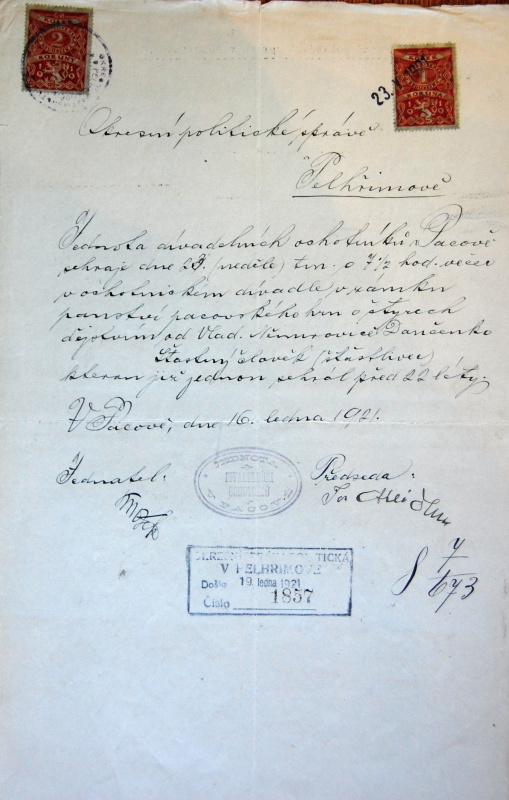 2
KORUNY
1
KORUNA
23.
Okresní politické správě
Pelhřimově
Jednota divadelních ochotníků v Pacově
sehraje dne 23. (neděle) t.m. o 7 1/2 hod. večer
v ochotnickém divadle v zámku
panství pacovského hru o čtyrech
dějstvím od Vlad. Němirovič Dančenko
Šťastný člověk (štěstlivec)
kterou již jednou sehrál před 22 léty.
V Pacově, dne 16. ledna 1921.
Jednatel: Předseda:
JEDNOTA
DIVADELNÍCH
OCHOTNÍKŮ
V PACOVĚ
OKRESNÍ SPRÁVA POLITICKÁ
V PELHŘIMOVĚ
Došlo 19. ledna 1921
Číslo 1857
8 7/673